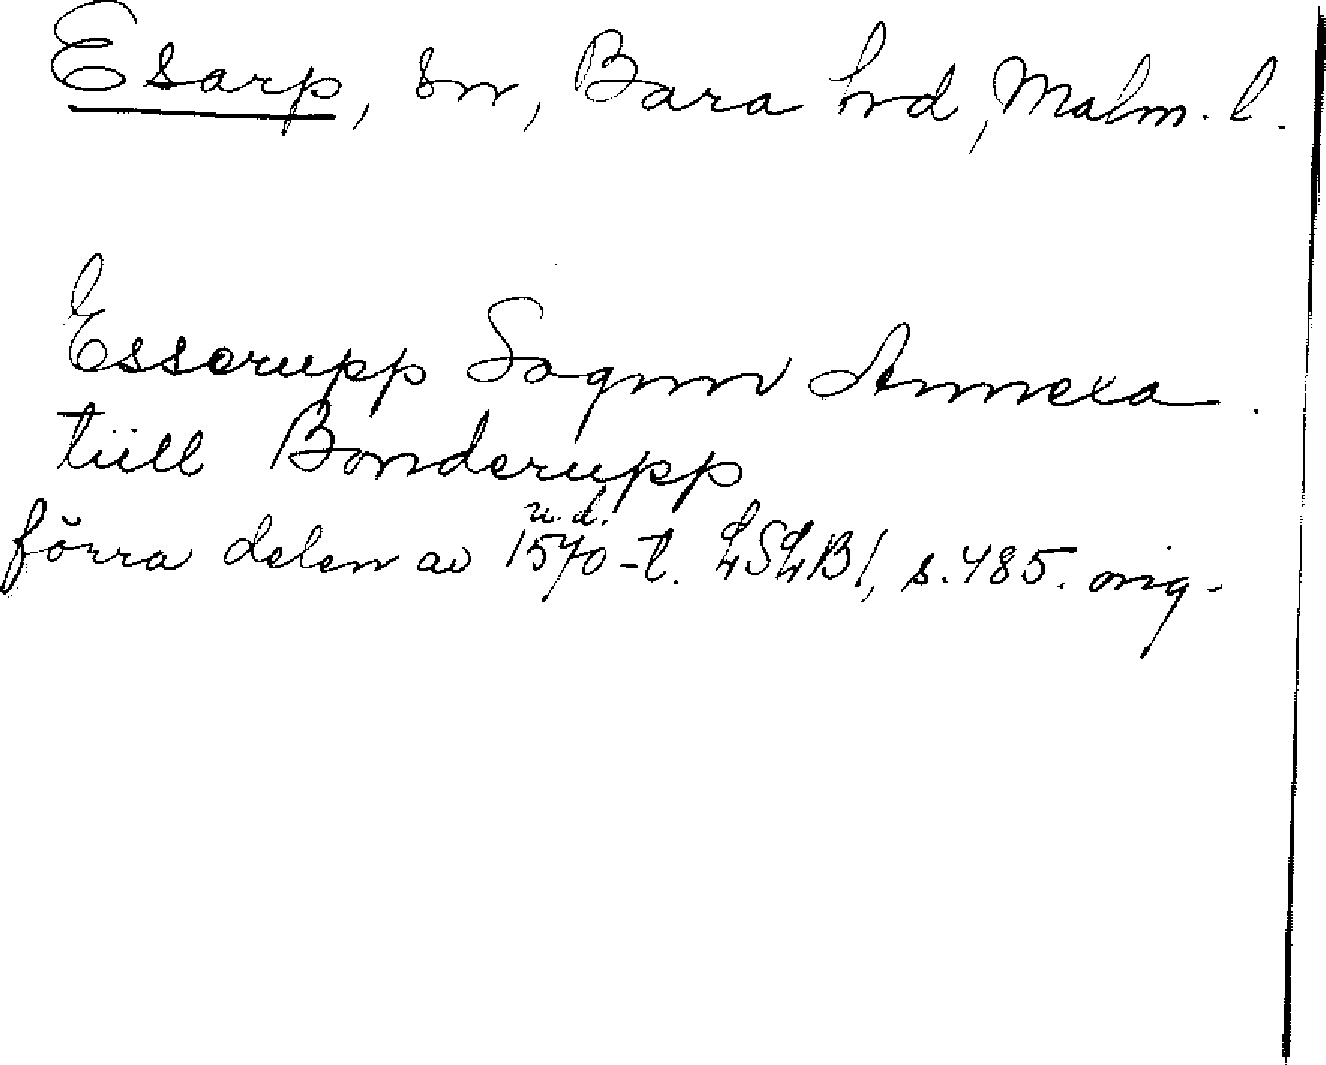 Esarp, sn, Bara hd, Malm. l.
Esserupp Sognn Annexa.
tiill Bonderupp
u. d.
förra delen av 1570-t. LSLB1, s. 485. orig.